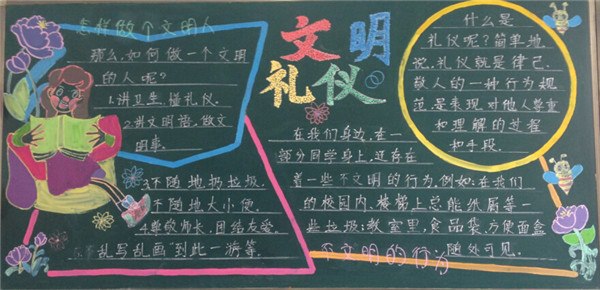 怎样做个文明人
那么,如何做一个文明
的人呢?
1.讲卫生,懂礼仪.
2.讲文明语,做文
明事.
3.不随地扔垃圾.
不随地大小便.
4.尊敬师长,团结友爱
乱写乱画"到此一游等.
文明
礼仪
什么是
礼仪呢?简单地
说,礼仪就是律己,
敬人的一种行为规
范是表现对他人尊重
和理解的过程
和手段.
在我们身边,在一
部分同学身上,还存在
着一些不文明的行为,例如:在我们
的校园内,楼梯上总能纸屑等一
些垃圾;教室里,食品袋、方便面盒
随处可见.
不文明的行为